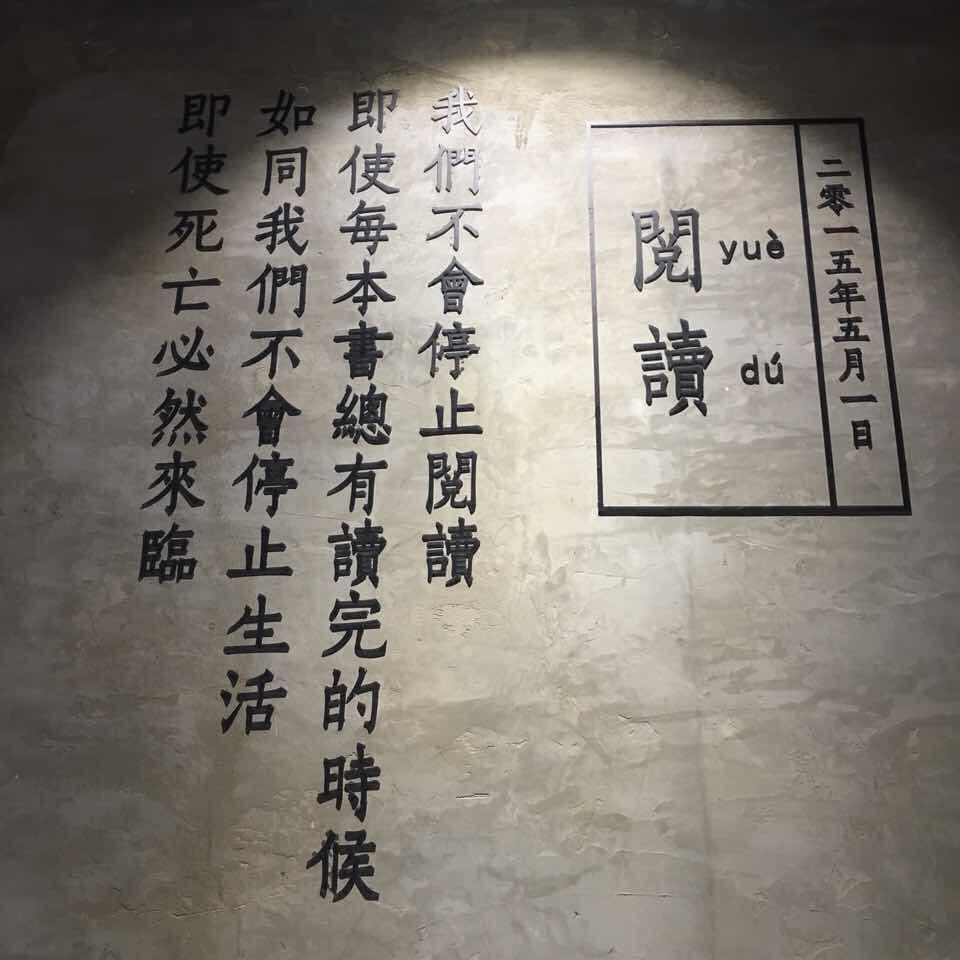 二零一五年五月一日
閱讀
yuè
dú
我們不會停止閱讀
即使每本書總有讀完的時候
如同我們不會停止生活
即使死亡必然來臨